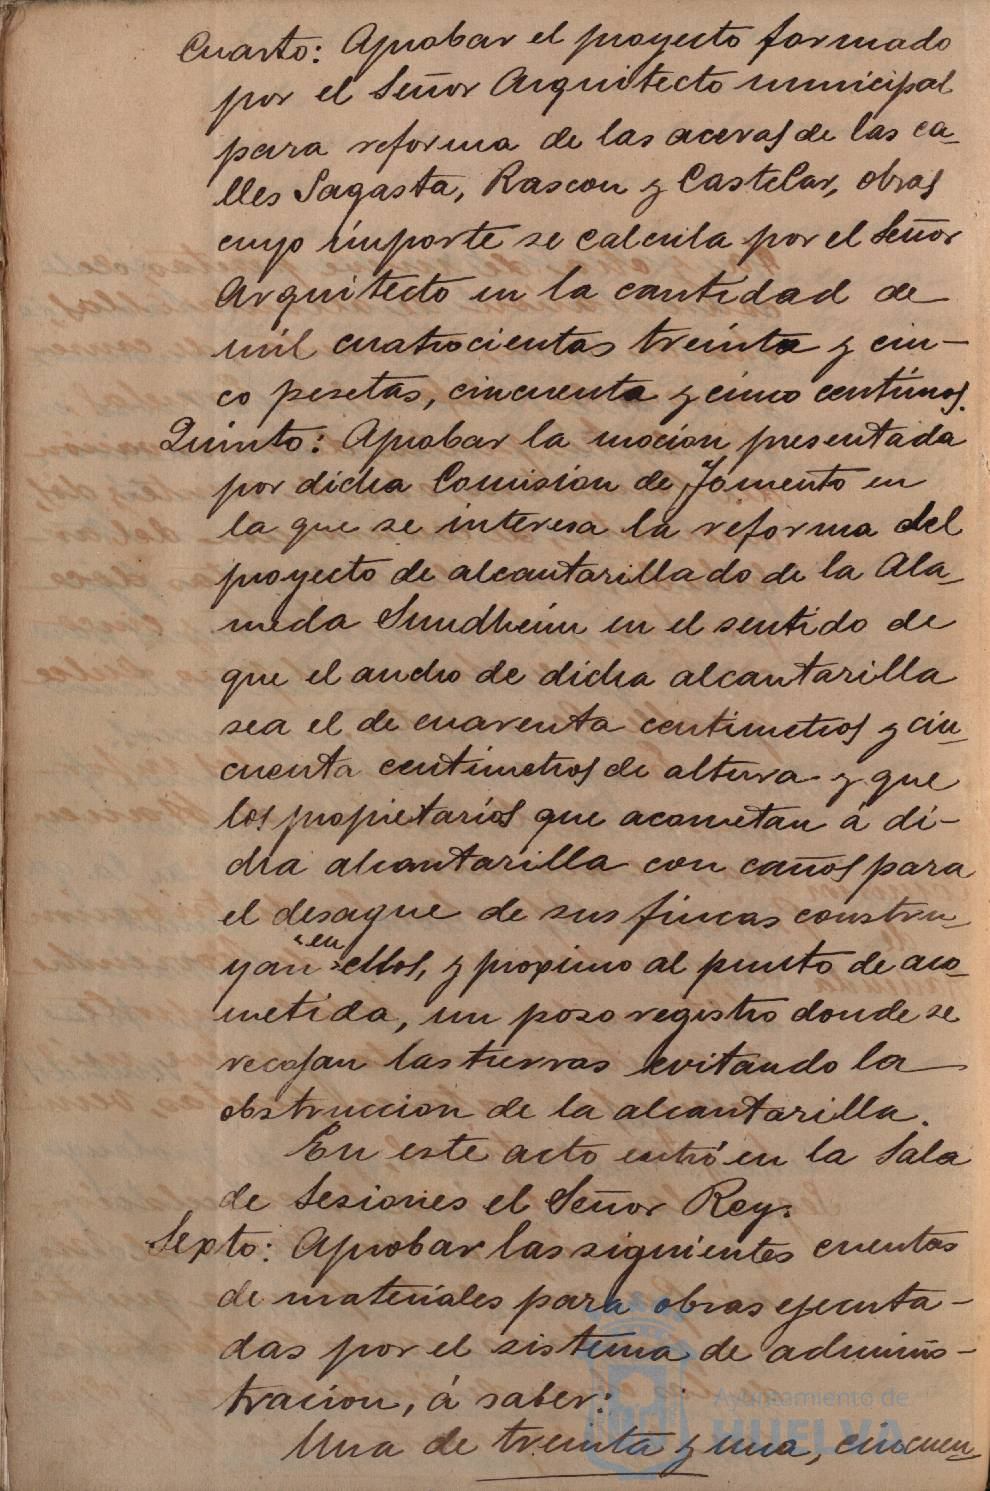 Cuarto: Aprobar el proyecto formado
por el Señor Arquitecto municipal
para reforma de las aceras de las ca-
lles Sagasta, Rascon y Castelar, obras
cuyo importe se calcula por el Señor
Arquitecto en la cantidad de
mil cuatrocientas treinta y cin-
co pesetas, cincuenta y cinco centimos.
Quinto: Aprobar la mocion presentada
por dicha Comision de Fomento en
la que se interesa la reforma del
proyecto de alcantarillado de la Ala-
meda Sundheim en el sentido de
que el ancho de dicha alcantarilla
sea el de cuarenta centimetros y cin-
cuenta centimetros de altura y que
los propietarios que acometan á di-
cha alcantarilla con caños para
el desague de sus fincas constru-
yan "en" ellos, y proximo al punto de aco-
metida, un poso registro donde se
recojan las tierras evitando la
obstruccion de la alcantarilla.
En este acto entró en la Sala
de Sesiones el Señor Rey.
Sexto: Aprobar las siguientes cuentas
de materiales para obras ejecuta-
das por el sistema de adminis-
tracion, á saber:
Una de treinta y una, cincuen-
Ayuntamiento de
HUELVA